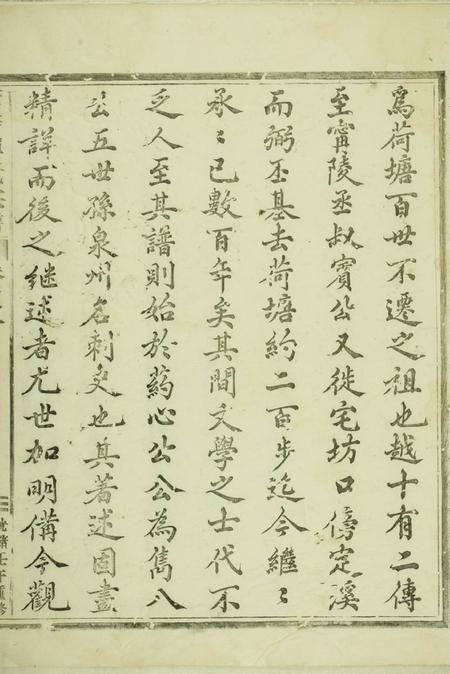 爲荷塘百世不遷之祖也越十有二傳
至甯陵丞叔賓公又徙宅坊口傍定溪
而弼丕基去荷塘約二百步迄今繼〻
承〻已數百年矣其間文學之士代不
乏人至其譜則始於葯心公公為雋八
公五世孫泉州名刺史也其著述固盡
精詳而後之継述者尤世加明備今觀
光緒壬午重修